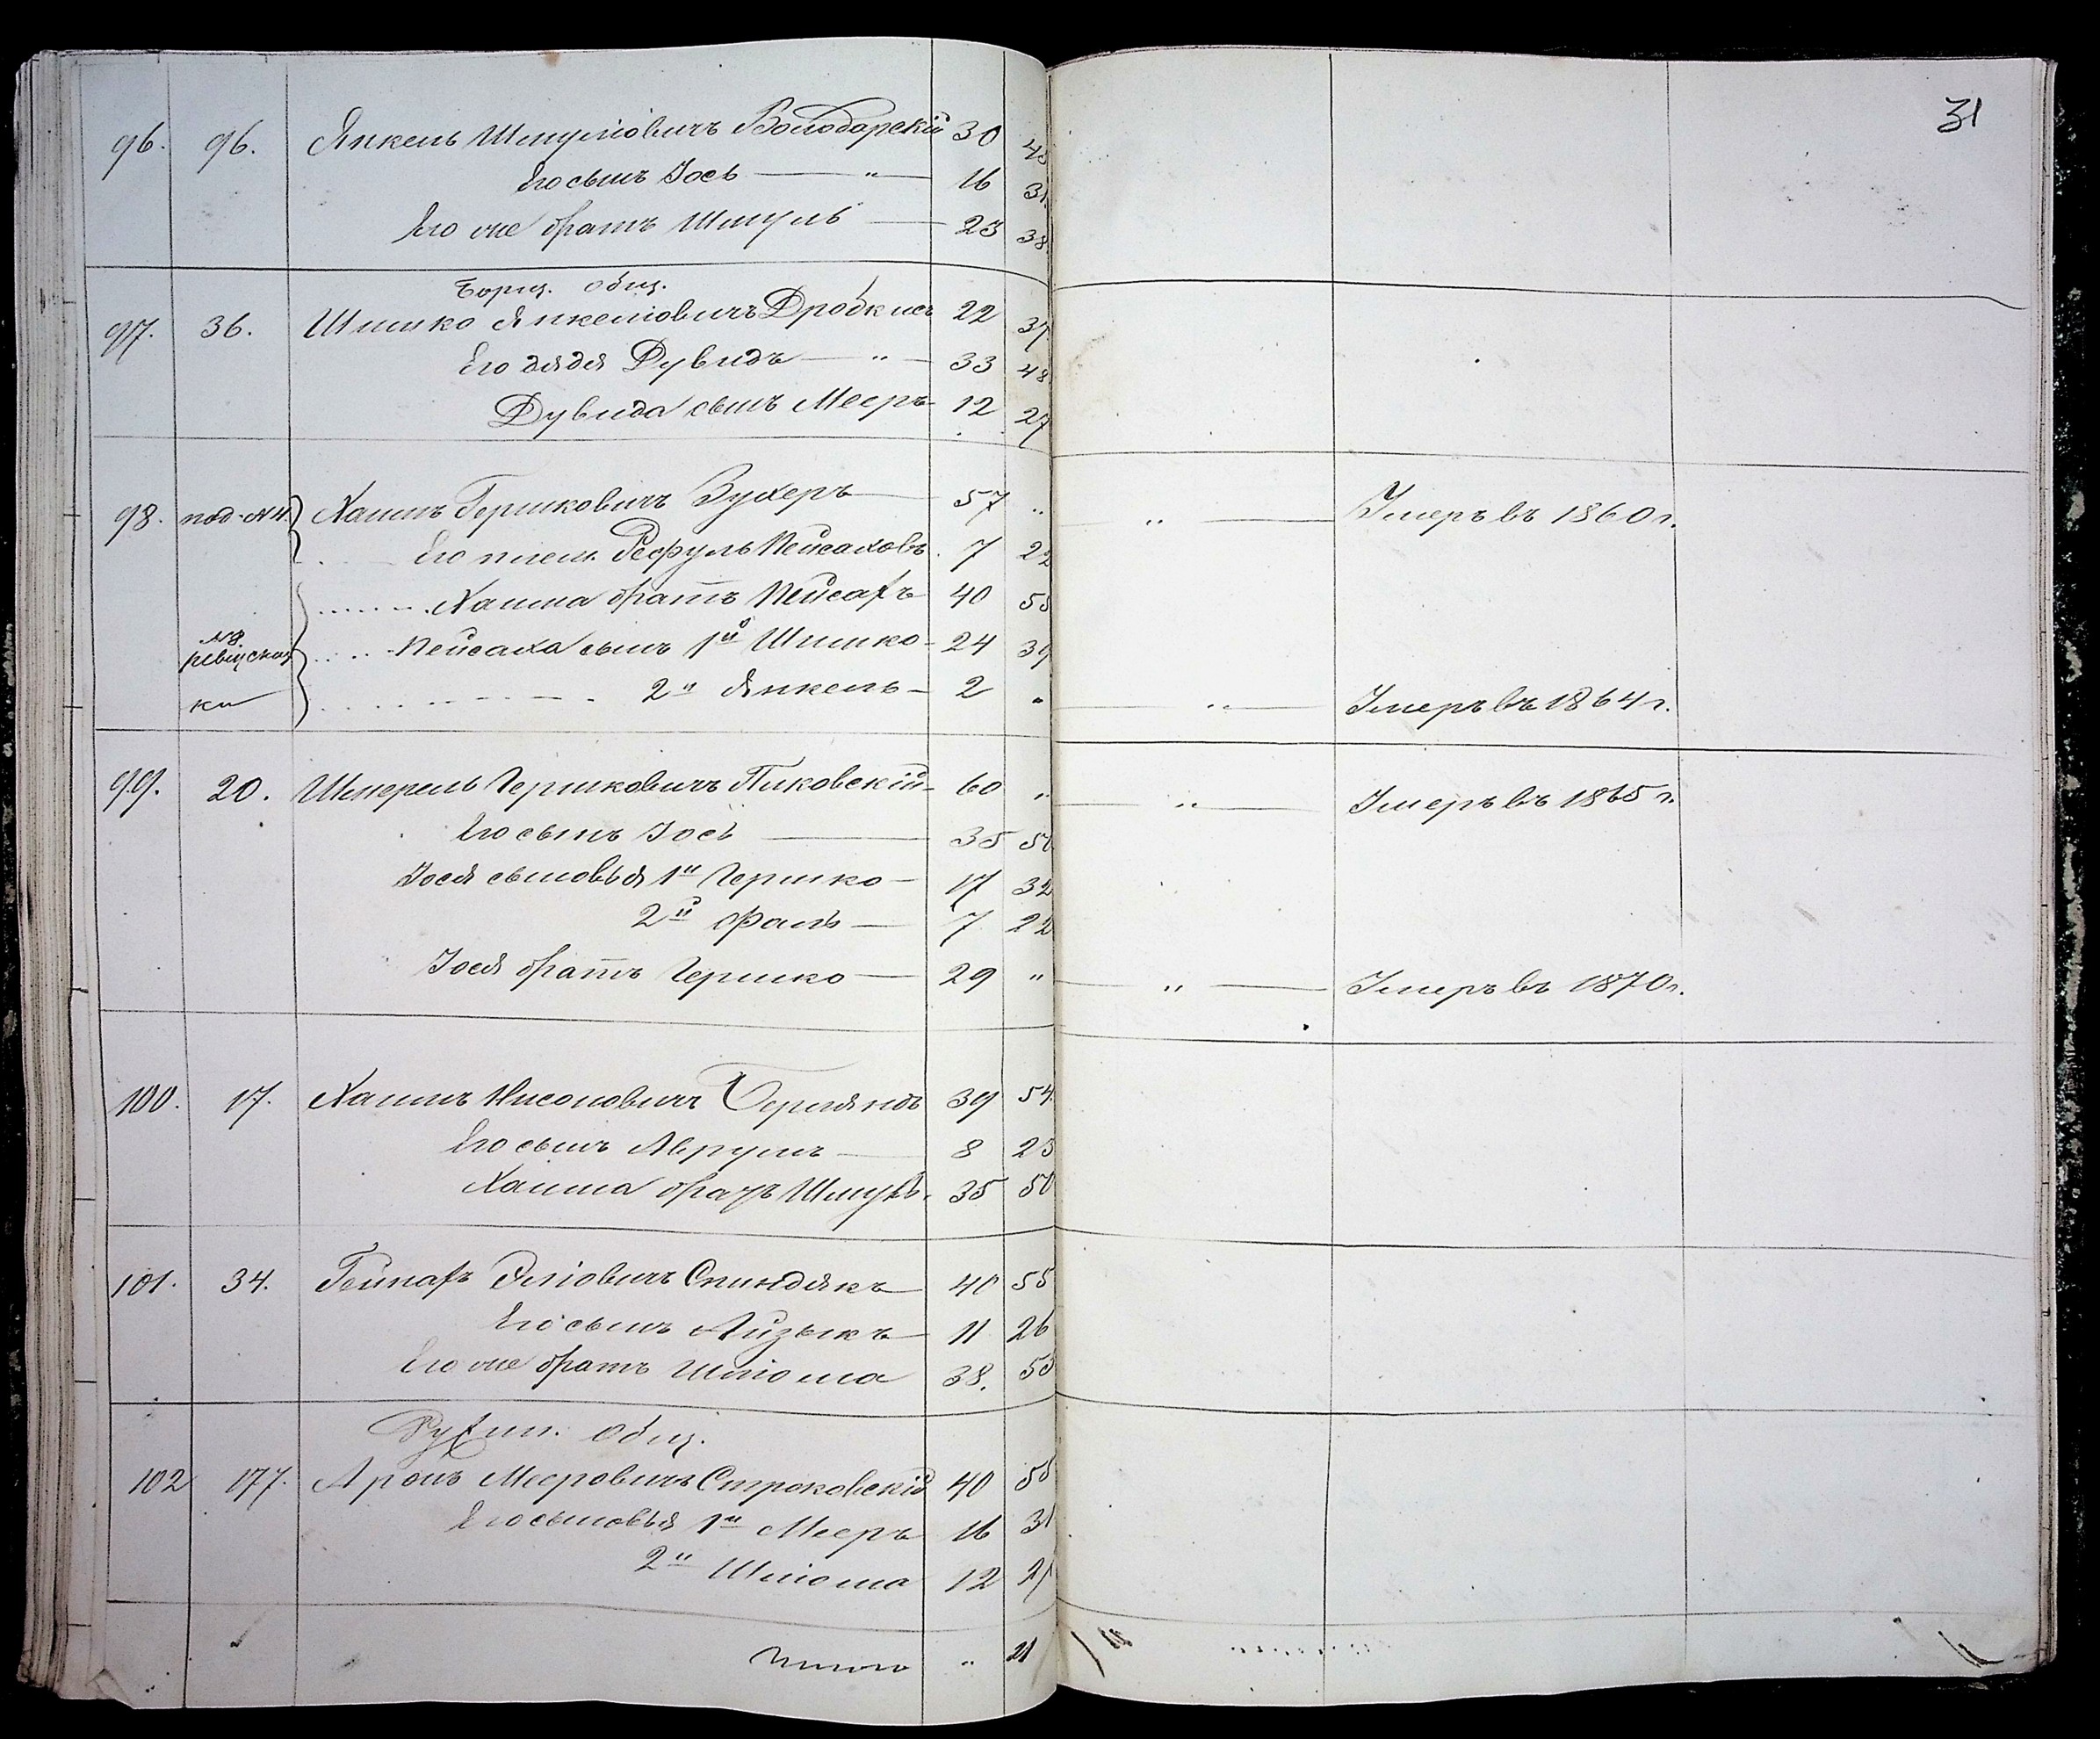 31
96. 96. Янкель Шмулiовичъ Володарскiй 30 45
Его сынъ Iось — " — 16 31.
Его же братъ Шмуль — 23 38.
Борщ. общ.
97. 36. Шимко Янкелiовичъ Дробкисъ 22 37
Его дядя Дувидъ — " — 33 48
Дувида сынъ Мееръ 12 27
98. под. №4. Хаимъ Гершковичъ Зухеръ — 57 " " — Умеръ въ 1860 г.
Его плем. Рефуль Пейсаховъ. 7 22
Хаима братъ Пейсахъ 40 55
№8 ревизской Пейсаха сынъ 1й Шимко - 24 39
2й Янкель - 2 " — " — Умеръ въ 1864 г.
99. 20. Шмерель Гершковичъ Пиковскiй - 60 " — " — Умеръ въ 1865 г.
Его сынъ Iось — 35 50
Iося сыновья 1й Гершко — 17 32
2й — 7 22
Iося братъ Гершко — 29 " — " — Умеръ въ 1870 г.
100. 17. Хаимъ Нисоновичъ 39 54.
Его сынъ Аврумъ — 8 23
Хаима братъ Шмуль. 35 50
101. 34. Элiовичъ Спиндякъ — 40 55
Его сынъ Айзыкъ — 11 26
Его же братъ Шлiома 38. 53
Ружин. общ.
102 177. Аронъ Мееровичъ Строковскiй 40 55
Его сыновья 1й Мееръ 16 31
2й Шлiома 12 27
Итого " 21